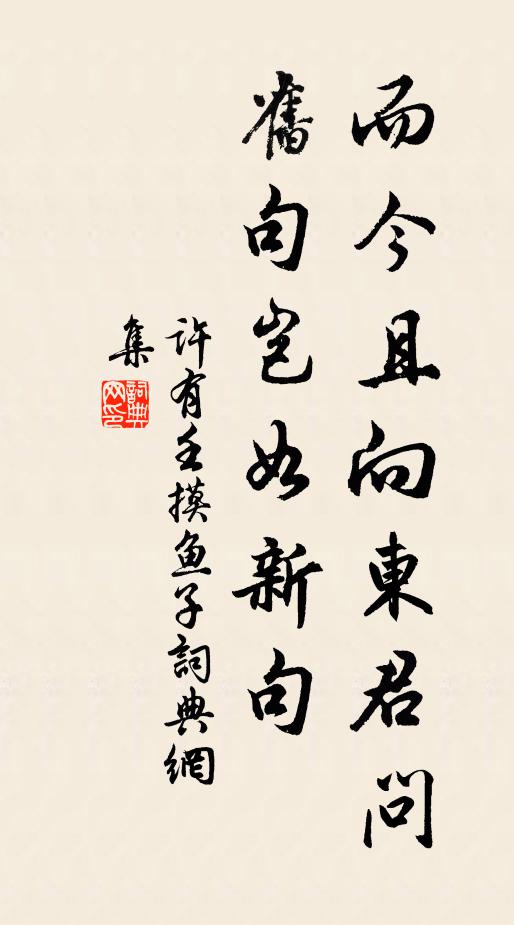 而今且向東君問
舊句豈如新句
許有壬摸魚子詞典網
集
詞典网印